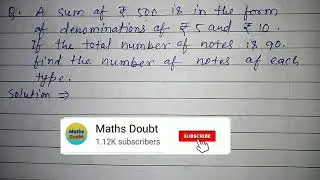 Q. A sum of ₹ 500 is in the form
of denominations of ₹ 5 and ₹ 10.
If the total number of notes is 90.
find the number of notes of each
type.
Solution ⇒
Maths Doubt
Maths Doubt
1.12K subscribers
SUBSCRIBE